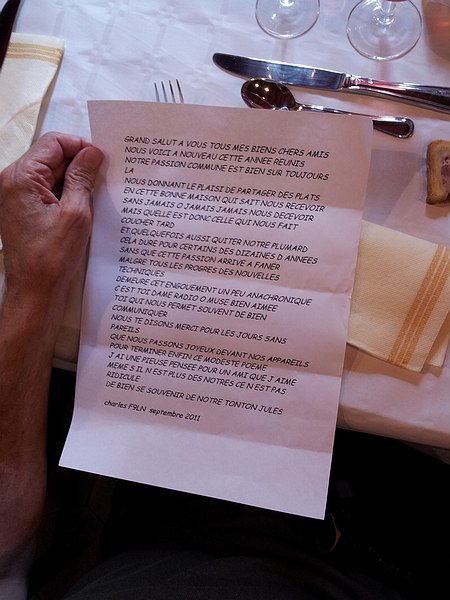 GRAND SALUT A VOUS TOUS MES BIENS CHERS AMIS
NOUS VOICI A NOUVEAU CETTE ANNEE REUNIS
NOTRE PASSION COMMUNE EST BIEN SUR TOUJOURS
LA
NOUS DONNANT LE PLAISI DE PARTAGER DES PLATS
EN CETTE BONNE MAISON QUI SAIT NOUS RECEVOIR
SANS JAMAIS O JAMAIS JAMAIS NOUS DECEVOIR
MAIS QUELLE EST DONC CELLE QUI NOUS FAIT
COUCHER TARD
ET QUELQUEFOIS AUSSI QUITER NOTRE PLUMARD
CELA DURE POUR CERTAINS DES DIZAINES D ANNEES
SANS QUE CETTE PASSION ARRIVE A FANER
MALGRE TOUS LES PROGRES DES NOUVELLES
TECHNIQUES
DEMEURE CET ENGOUEMENT UN PEU ANACHRONIQUE
C EST TOI DAME RADIO O MUSE BIEN AIMEE
TOI QUI NOUS PERMET SOUVENT DE BIEN
COMMUNIQUER
NOUS TE DISONS MERCI POUR LES JOURS SANS
PAREILS
QUE NOUS PASSONS JOYEUX DEVANT NOS APPAREILS
POUR TERMINER ENFIN CE MODESTE POEME
J AI UNE PIEUSE PENSEE POUR UN AMI QUE J AIME
MEME S IL N EST PLUS DES NOTRES CE N EST PAS
RIDICULE
DE BIEN SE SOUVENIR DE NOTRE TONTON JULES
charles F9LN septembre 2011